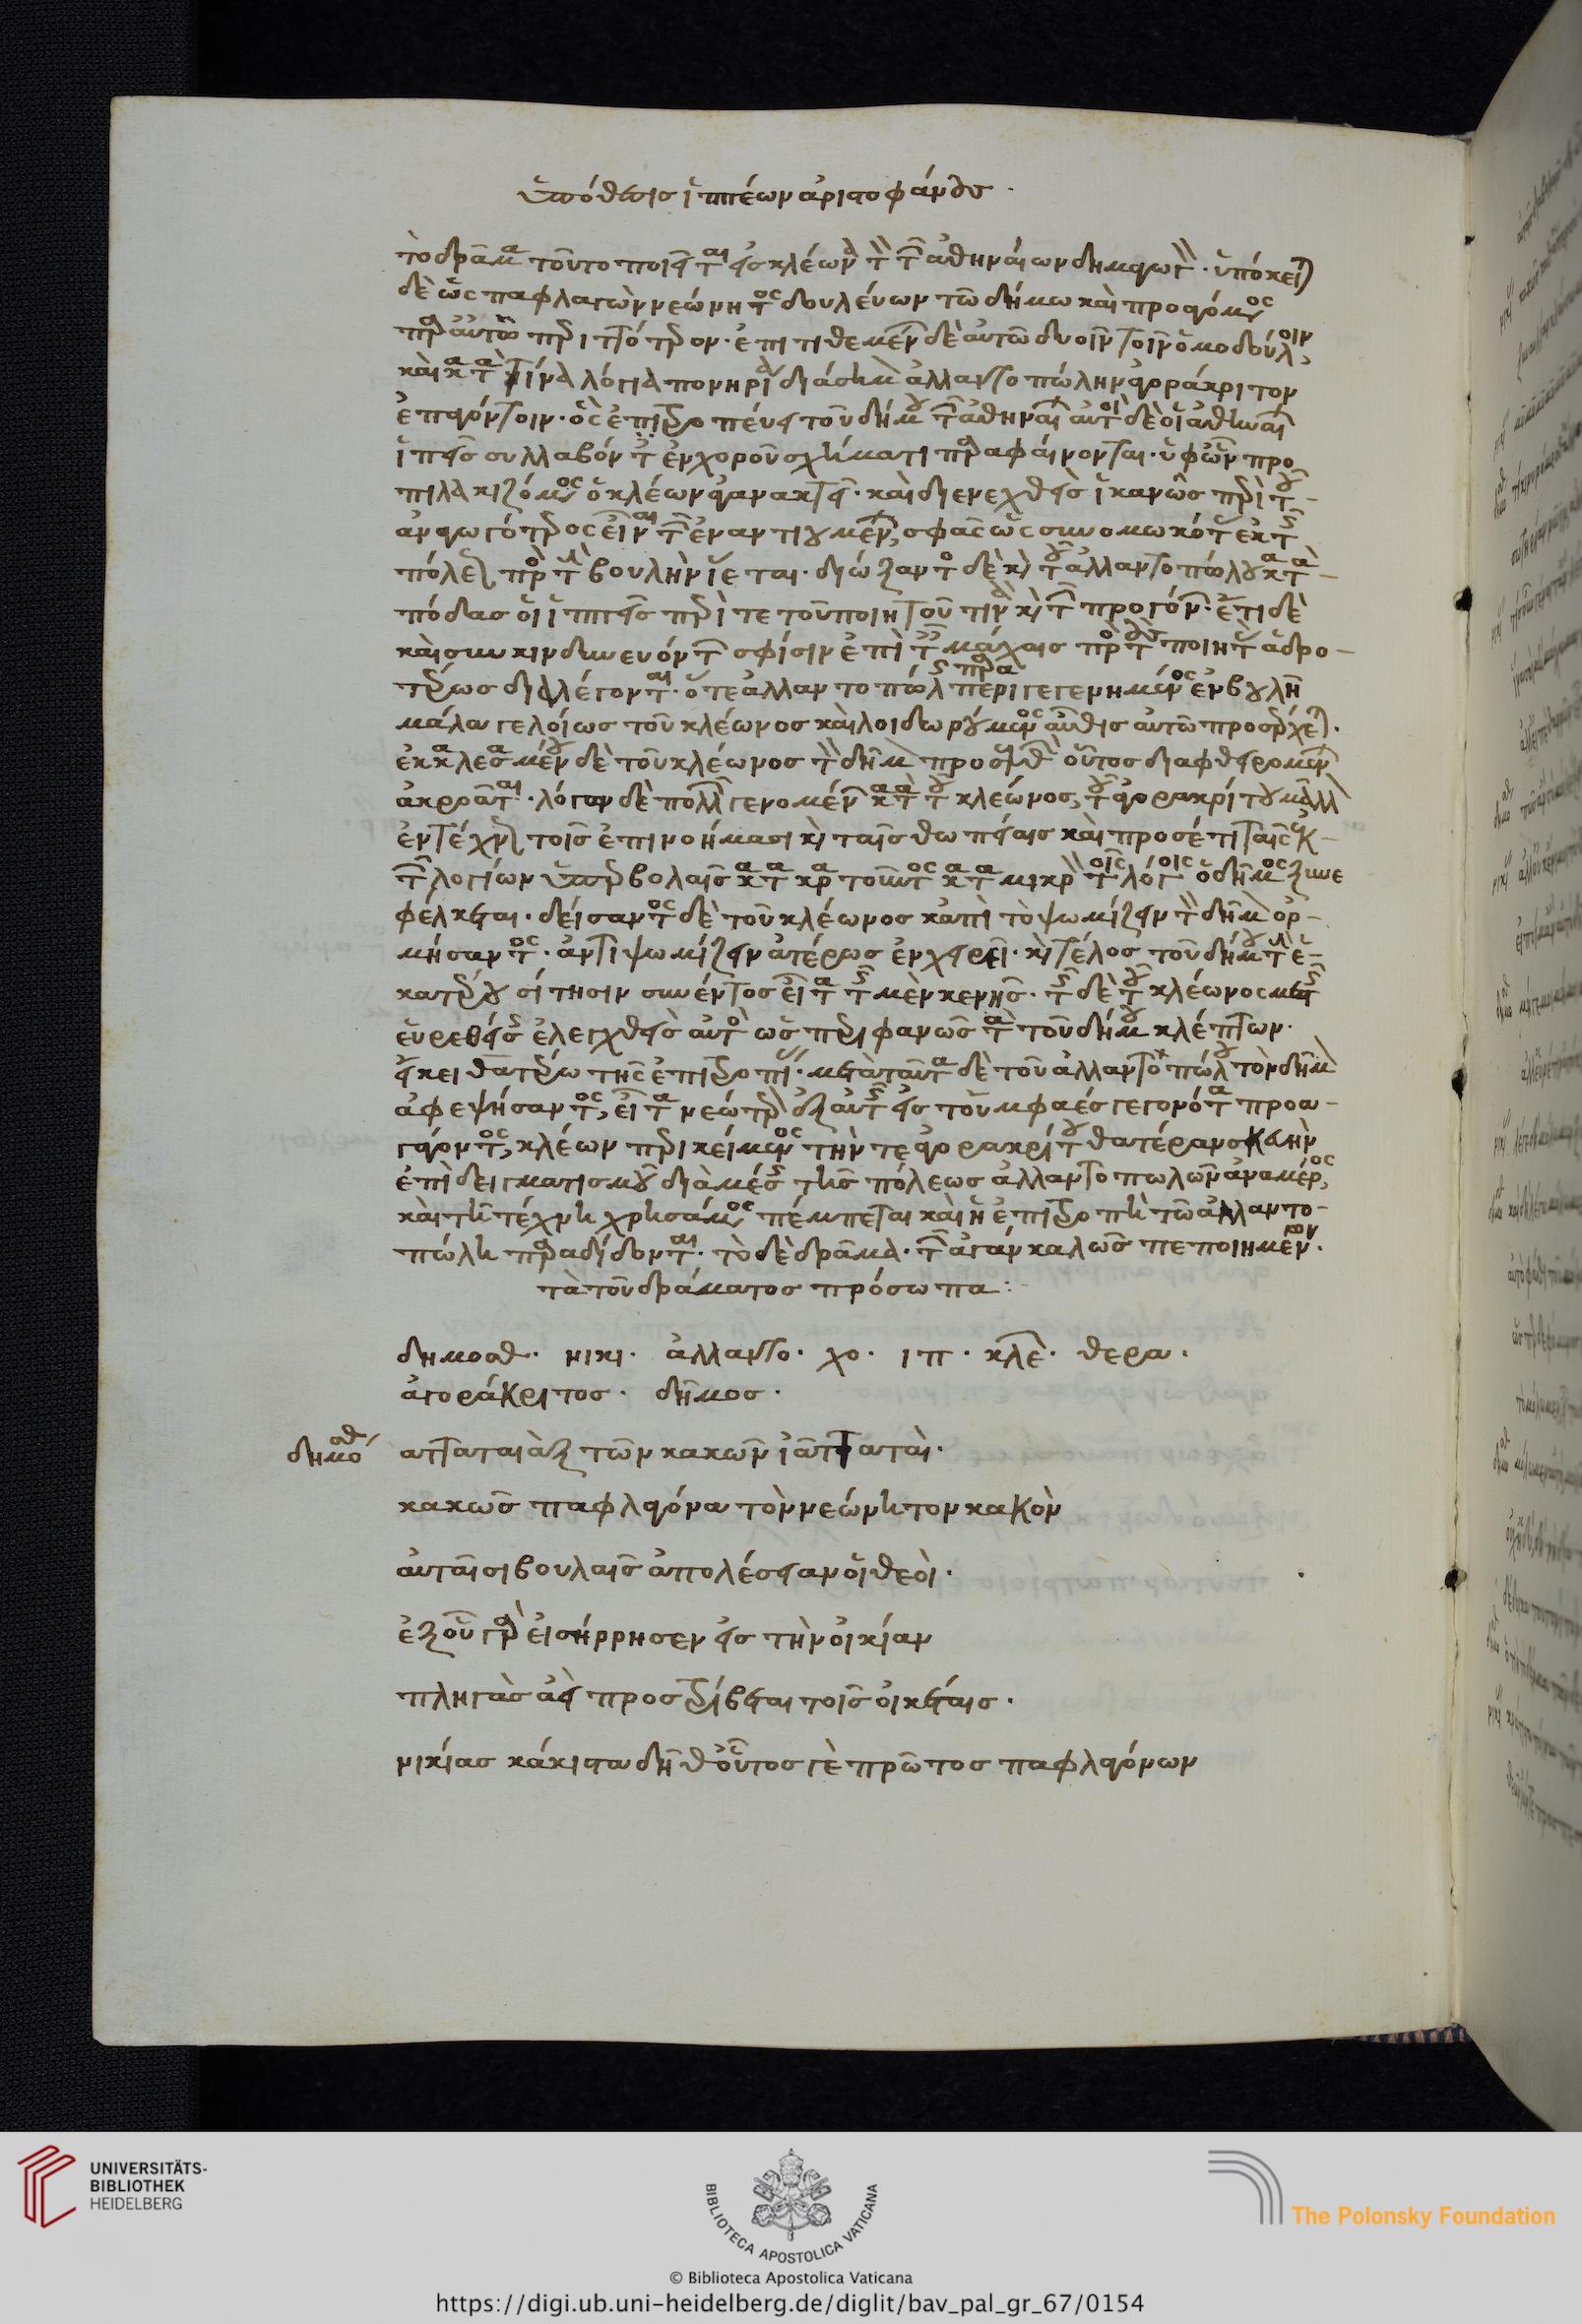 ὑπόθεσις ἱππέων ἀριστοφάνους.
τὸ δρᾶμα τοῦτο ποιεῖται εἰς κλέωνα τὸν τῶν ἀθηναίων δημαγωγόν. ὑπόκειται
δὲ ὡς παφλαγὼν νεώνητος δουλεύων τῶ δήμω καὶ προαγόμενος
παρ' αὐτῶ περιττότερον. ἐπιτιθεμένων δὲ αὐτῶ δυοῖν τοῖν ὁμοδούλοιν
καὶ κατά τινα λόγια πονηρία διάσημον ἀλλαντοπώλην ἀγορράκριτον
ἐπαγόντοιν. ὃς ἐπιτροπεύει τοῦ δήμου τῶν ἀθηναίων αὐτοὶ δὲ οἱ ἀθηναίων
ἱππεῖς συλλαβόντες ἐν χοροῦ σχήματι παραφαίνονται. ὑφ' ὧν προ
πηλακιζόμενος ὁ κλέων ἀγανακτεῖ. καὶ διενεχθεὶς ἱκανῶς περὶ τοῦ
ἀναγωγότερος εἶναι τῶν ἐναντιουμένων, σφᾶς ὡς συνομωκότας ἐκ τῆς
πόλεως πρὸς τὴν βουλὴν ἵεται. διώξαντος δὲ καὶ τοῦ ἀλλαντοπώλου κατὰ
πόδας οἱ ἱππεῖς περί τε τοῦ ποιητοῦ τινὰ καὶ τῶν προγόνων. ἔτι δὲ
καὶ συγκινδυνευόντων σφίσιν ἐπὶ ταῖς μάχαις πρὸς τοὺς ποιητὰς ἁδρο
τέρως διαλέγονται. ὅ τε ἀλλαντοπώλης περιγεγενημένος ἐν βουλῆ
μάλα γελοίως τοῦ κλέωνος καὶ λοιδωρούμενος αὖθις αὐτῶ προσέρχεται.
ἐκκαλεσαμένου δὲ τοῦ κλέωνος τὸν δῆμον προσελθὼν οὗτος διαφθειρομένων
ἀκροᾶται. λόγων δὲ πολλῶν γενομένων κατὰ τοῦ κλέωνος, τοῦ ἀγορακρίτου μάλα
ἐντέχνως τοῖς ἐπινοήμασι καὶ ταῖς θωπείαις καὶ προσέτι ταῖς ἐκ
τῶν λογίων ὑπερβολαῖς κατακρατοῦντος κατὰ μικρὸν τοῖς λόγοις ὁ δῆμος συνε
φέλκεται. δείσαντος δὲ τοῦ κλέωνος κἀπὶ τὸ ψωμίζειν τὸν δῆμον ὁρ
μήσαντος. ἀντιψωμίζειν ἁτέρως ἐγχειρεῖ. καὶ τέλος τοῦ δήμου τὴν ἑ
κατέρου σίτησιν συνέντος εἶτα τῆς μὲν κενῆς. τῆς δὲ τοῦ κλέωνος μεστῆς
εὑρεθείσης ἐλεγχθεὶς αὐτὸς ὡς περιφανῶς τὰ τοῦ δήμου κλέπτων.
εἴκει θατέρω τῆς ἐπιτροπῆς. μετὰ ταῦτα δὲ τοῦ ἀλλαντοπώλου τὸν δῆμον
ἀφεψήσαντος, εἶτα νεώτερον ἐξαυτῆς εἰς τοὐμφαὲς γεγονότα προα
γαγόντος, κλέων περικείμενος τήν τε ἀγορακρίτου θατέραν σκευὴν
ἐπὶ δειγματισμῶ διὰ μέσης τῆς πόλεως ἀλλαντοπωλῶν ἀνὰ μέρος,
καὶ τῆ τέχνη χρησάμενος πέμπεται καὶ ἡ ἐπιτροπὴ τῶ ἀλλαντο
πώλη παραδίδονται. τὸ δὲ δρᾶμα. τῶν ἄγαν καλῶς πεποιημένων.
τὰ τοῦ δράματος πρόσωπα:
δημοσθ. νικι. ἀλλαντο. χο. ιπ. κλε. θερα.
ἀγοράκριτος. δῆμος.
δημοσθ ατταταιὰξ τῶν κακῶν ἰατταταὶ.
κακῶς παφλαγόνα τὸν νεώνητον κακὸν
αὐταῖσι βουλαῖς ἀπολέσειαν οἱ θεοὶ.
ἐξ οὗ γὰρ εἰσήρρησεν εἰς τὴν οἰκίαν
πληγὰς ἀεὶ προστρίβεται τοῖς οἰκέταις.
νικίας κάκιστα δῆθ' οὗτος γὲ πρῶτος παφλαγόνων
UNIVERSITÄTS-
BIBLIOTHEK
HEIDELBERG
BIBLIOTECA APOSTOLICA VATICANA
The Polonsky Foundation
© Biblioteca Apostolica Vaticana
https://digi.ub.uni-heidelberg.de/diglit/bav_pal_gr_67/0154